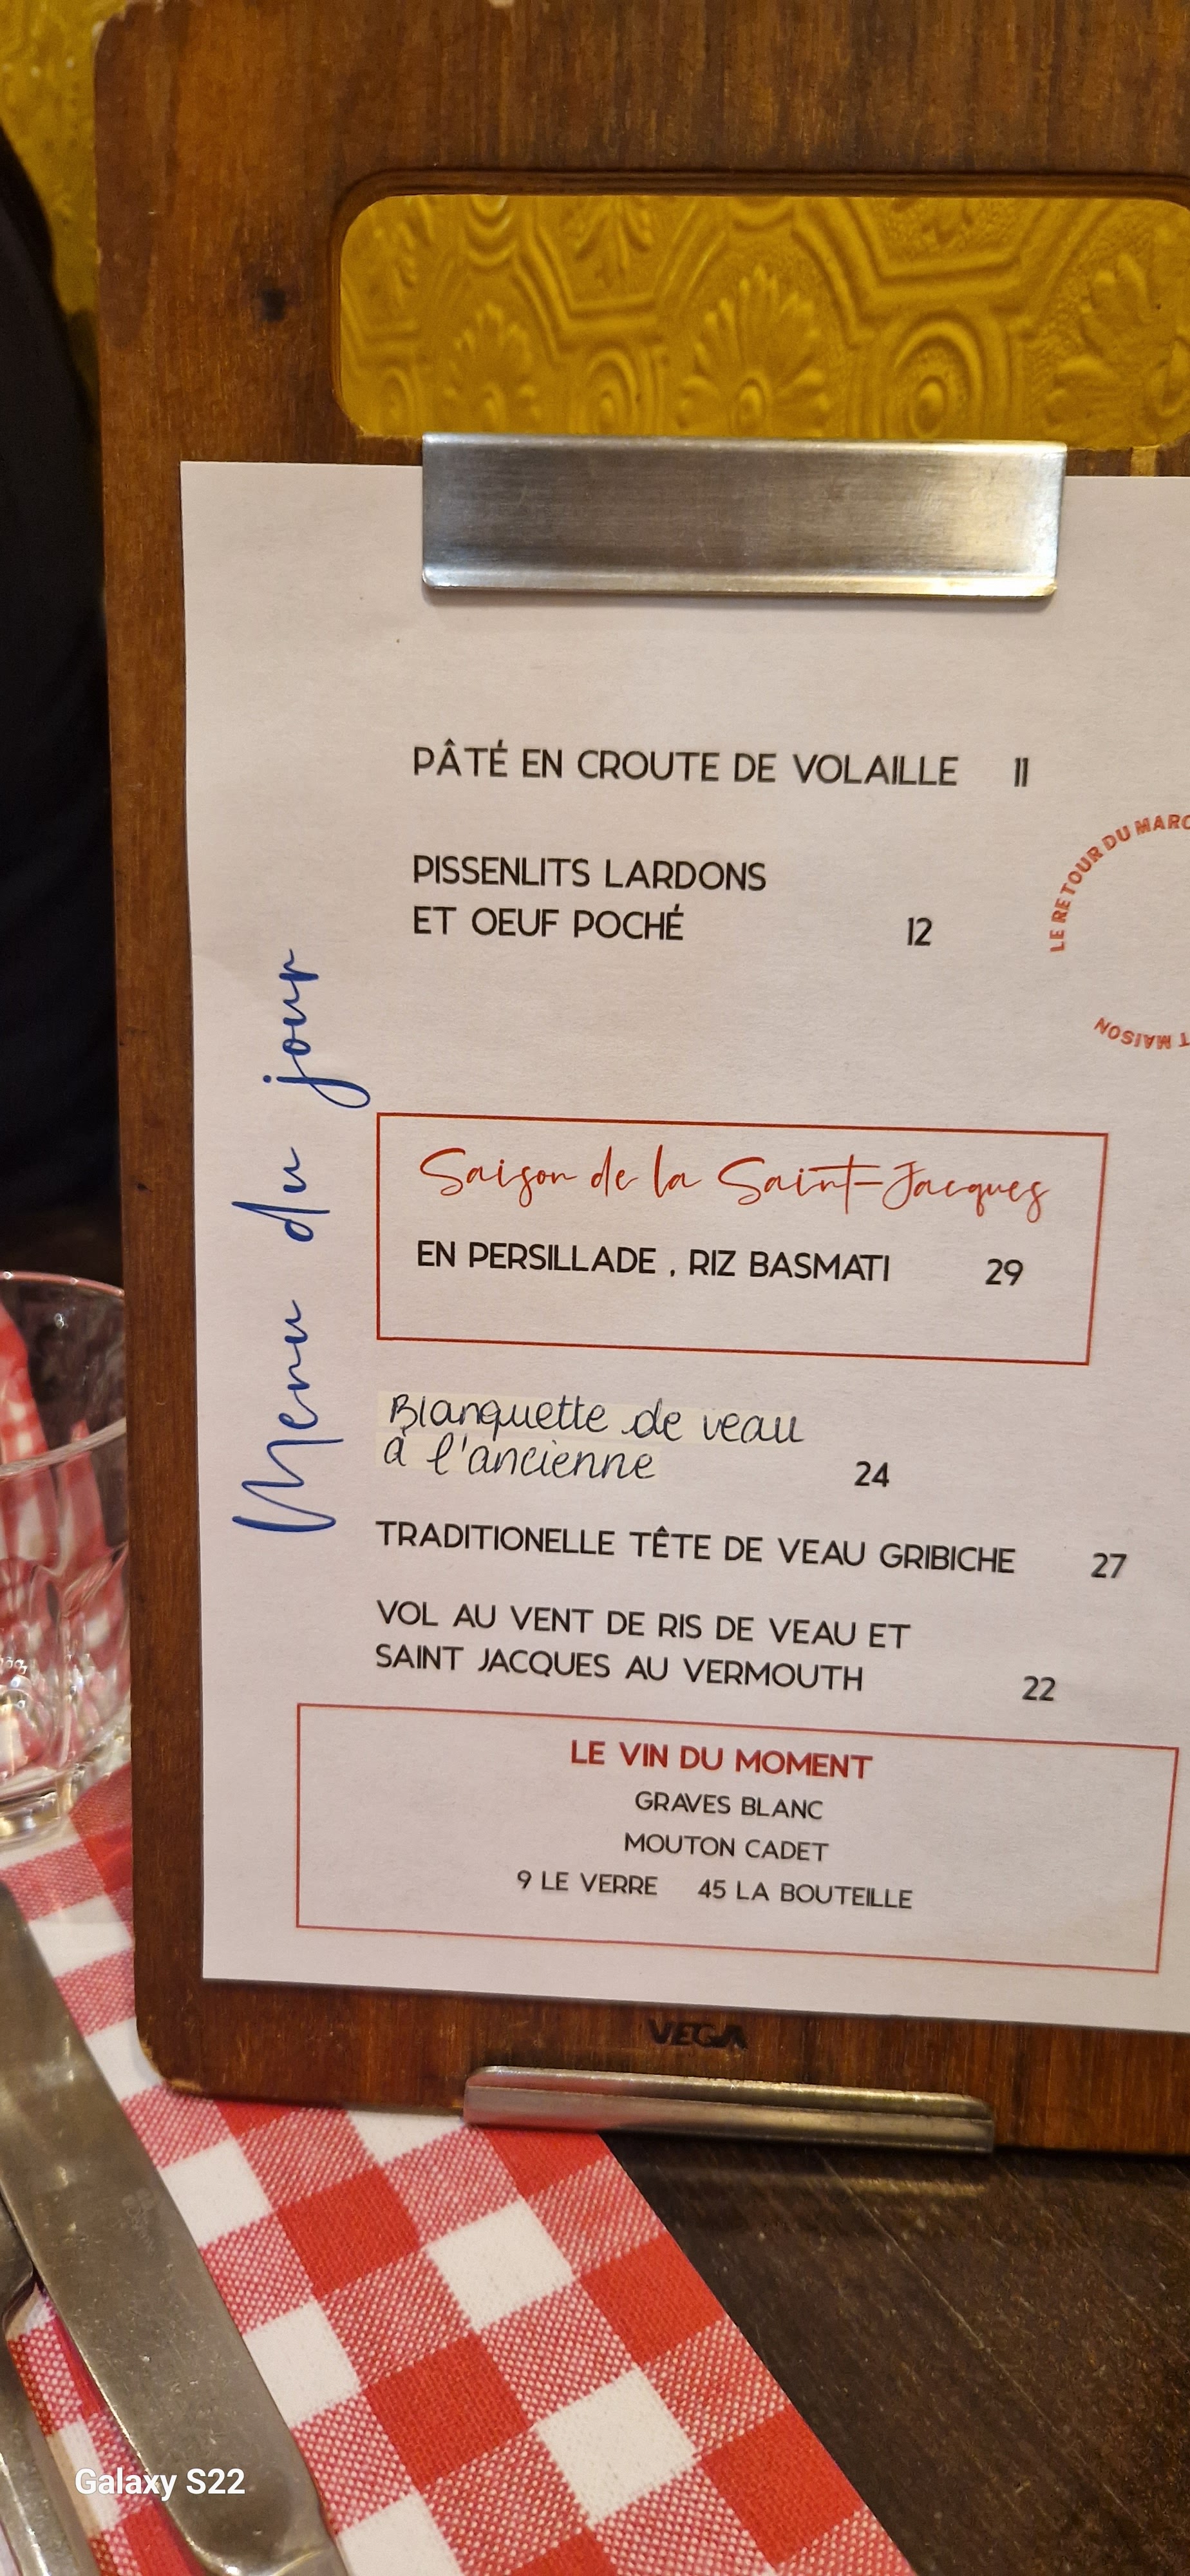 PÂTÉ EN CROUTE DE VOLAILLE 11
PISSENLITS LARDONS
ET OEUF POCHÉ 12
LE RETOUR DU
MAISON
Menu du jour
Saison de la Saint-Jacques
EN PERSILLADE , RIZ BASMATI 29
Blanquette de veau
à l'ancienne 24
TRADITIONELLE TÊTE DE VEAU GRIBICHE 27
VOL AU VENT DE RIS DE VEAU ET
SAINT JACQUES AU VERMOUTH 22
LE VIN DU MOMENT
GRAVES BLANC
MOUTON CADET
9 LE VERRE 45 LA BOUTEILLE
VEGA
Galaxy S22